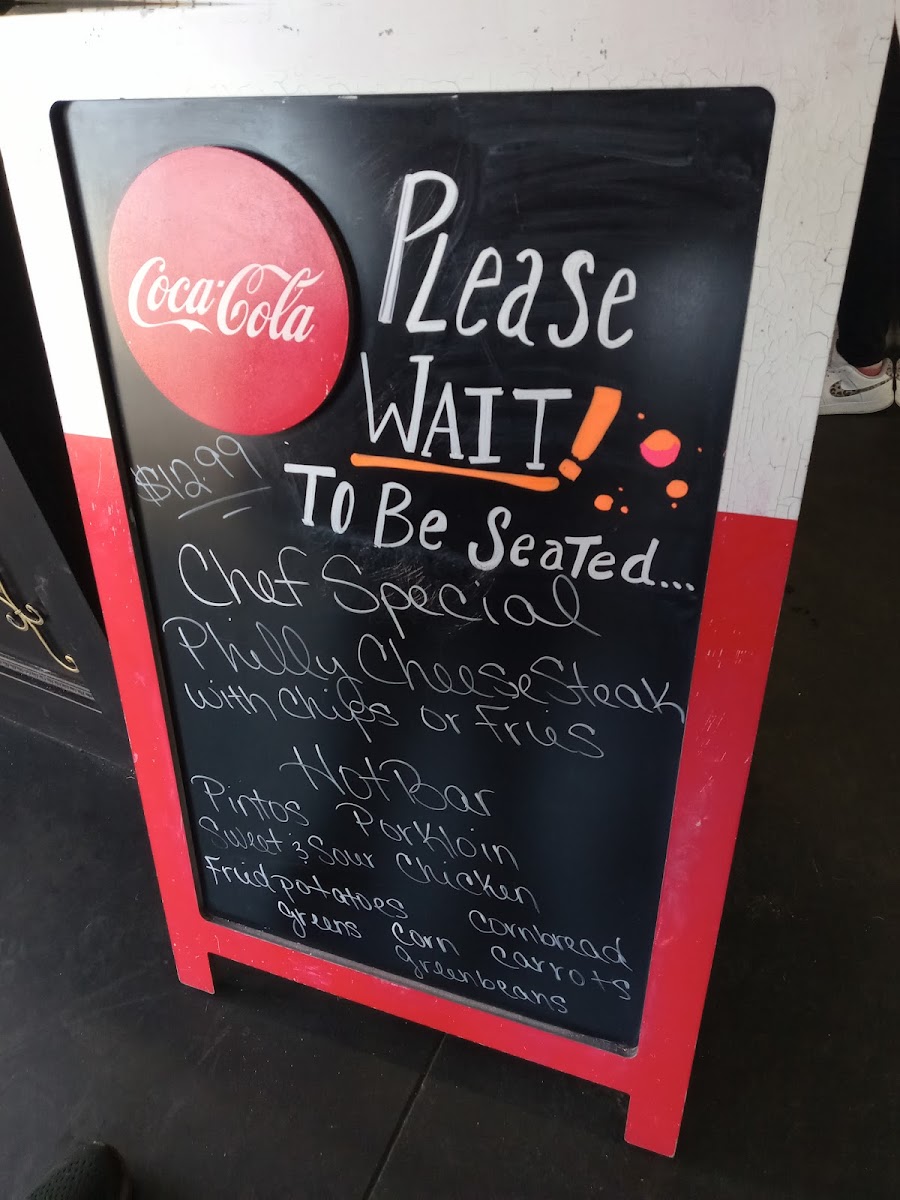 Coca-Cola
PLease
WAIT!
To Be SeaTed...
$12.99
Chef Special
Philly Cheese Steak
with Chips or Fries
Hot Bar
Pintos Porkloin
Sweet & Sour Chicken
Fried potatoes cornbread
greens corn carrots
greenbeans